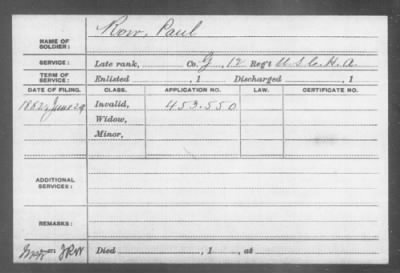 NAME OF SOLDIER: Row, Paul
SERVICE: Late rank, Co. G, 12 Reg't U.S.C.H.A
TERM OF SERVICE: Enlisted , 1 Discharged , 1
DATE OF FILING. CLASS. APPLICATION NO. LAW. CERTIFICATE NO.
1882, June 29 Invalid, 453.550
Widow,
Minor,
ADDITIONAL SERVICES:
REMARKS:
Died , 1 , at